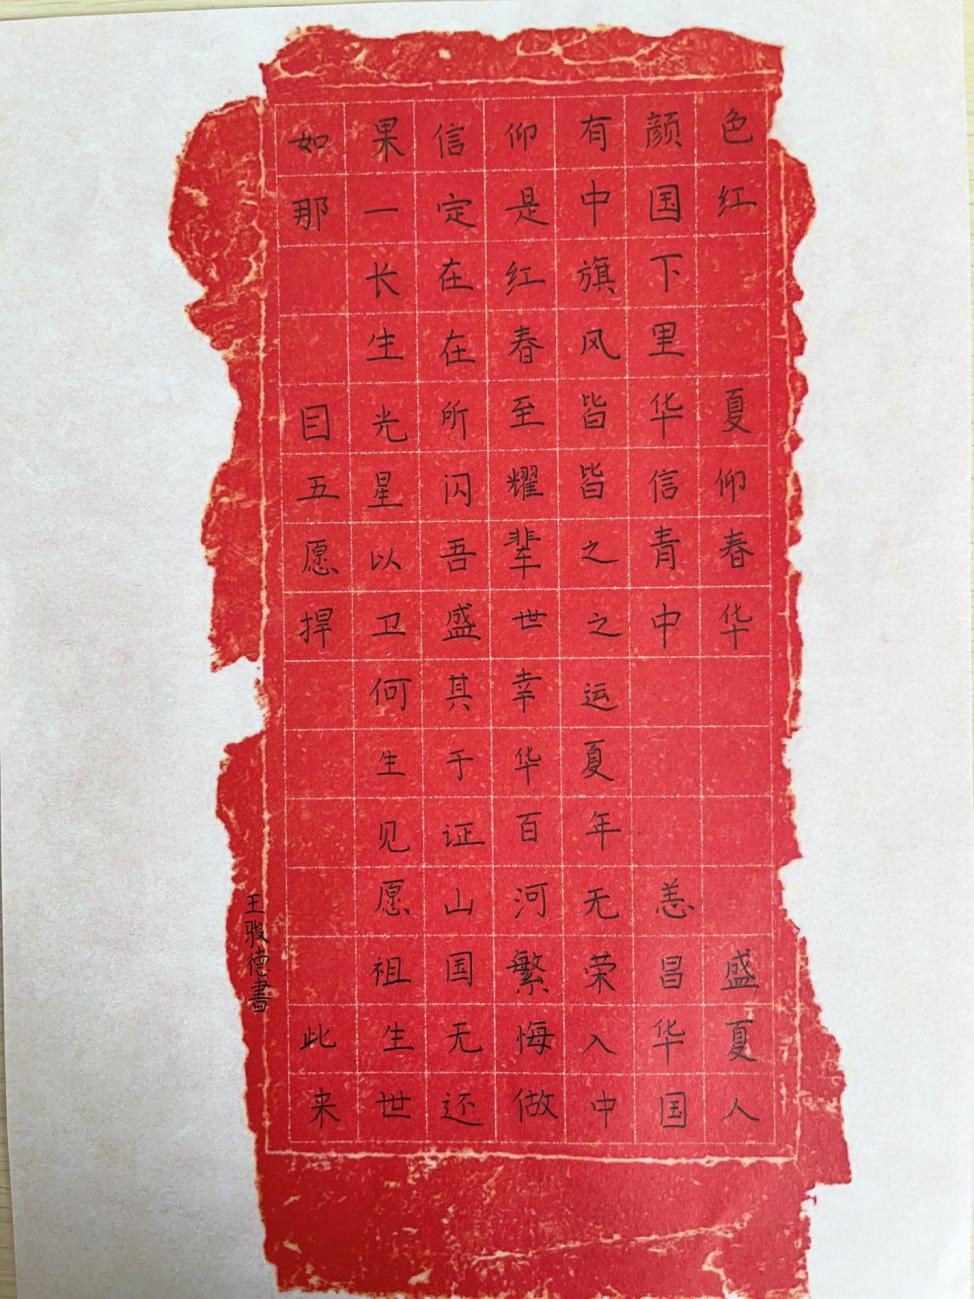 如果信仰有颜色
那一定是中国红
长在红旗下
生在春风里
目光所至皆华夏
五星闪耀皆信仰
愿以吾辈之青春
捍卫盛世之中华
何其幸运
生于华夏
见证百年
愿山河无恙
祖国繁荣昌盛
此生无悔入华夏
来世还做中国人
王骏德書